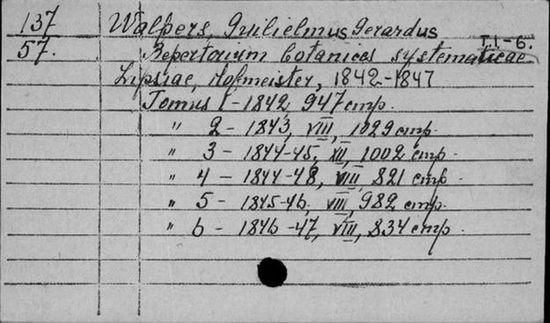 137 Walpers, Guilielmus Gerardus
57. Repertorium botanices systematicae T. 1-6.
Lipsiae, Hofmeister, 1842-1847
Tomus I - 1842, 947 стр.
" 2 - 1843, VIII, 1029 стр.
" 3 - 1844-45, XII, 1002 стр.
" 4 - 1844-48, VIII, 821 стр.
" 5 - 1845-46, VIII, 982 стр.
" 6 - 1846-47, VIII, 834 стр.